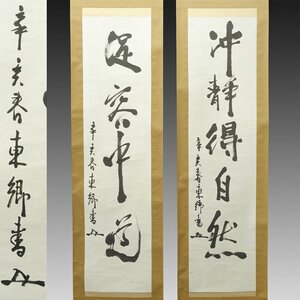 辛亥春東郷書
従容中道
辛亥春東郷書
沖静得自然
辛亥春東郷書